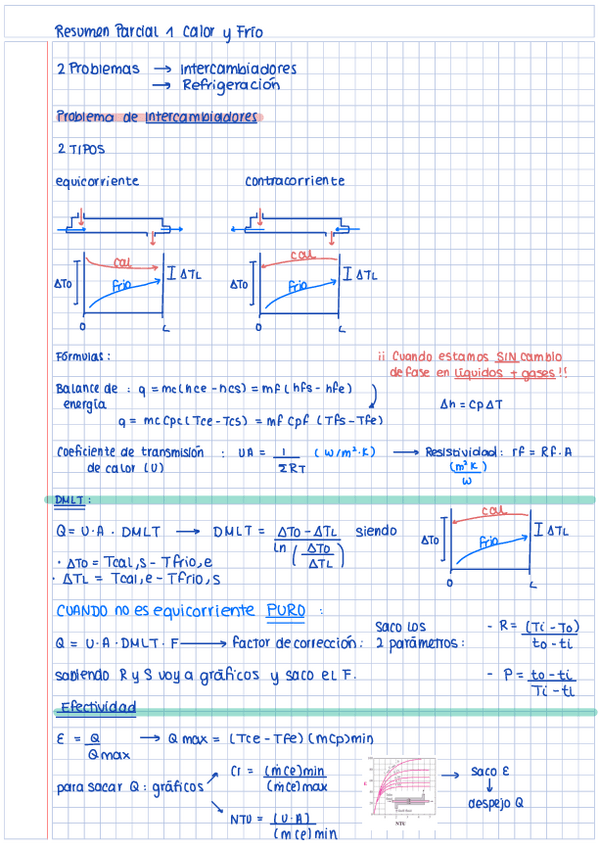 Resumen Parcial 1 Calor y Frío
2 Problemas → Intercambiadores
→ Refrigeración
Problema de Intercambiadores
2 TIPOS
equicorriente contracorriente
cal
ΔTo frio ΔTL
0 L
cal
ΔTo frio ΔTL
0 L
Fórmulas:
¡¡ Cuando estamos SIN cambio
de fase en líquidos + gases!!
Balance de : q = mc(hce - hcs) = mf (hfs - hfe)
energía
Δh = Cp ΔT
q = mc Cpc (Tce - Tcs) = mf Cpf (Tfs - Tfe)
Coeficiente de transmisión : UA = 1/ΣRT (W/m²·K) → Resistividad: rf = Rf·A
de calor (U) (m²K)/W
DMLT:
Q = U·A·DMLT → DMLT = (ΔTo - ΔTL)/ln(ΔTo/ΔTL) siendo
· ΔTo = Tcal,s - Tfrio,e
· ΔTL = Tcal,e - Tfrio,s
cal
ΔTo frio ΔTL
0 L
CUANDO no es equicorriente PURO:
Q = U·A·DMLT·F → factor de corrección: saco los 2 parámetros:
- R = (Ti - To)/to - ti
sabiendo R y S voy a gráficos y saco el F.
- P = to - ti/Ti - ti
Efectividad
ε = Q/Qmax → Qmax = (Tce - Tfe)(mCp)min
para sacar Q: gráficos
Cr = (ṁce)min/(ṁce)max
NTU = (U·A)/(ṁce)min
ε
NTU
→ saco ε
↓
despejo Q